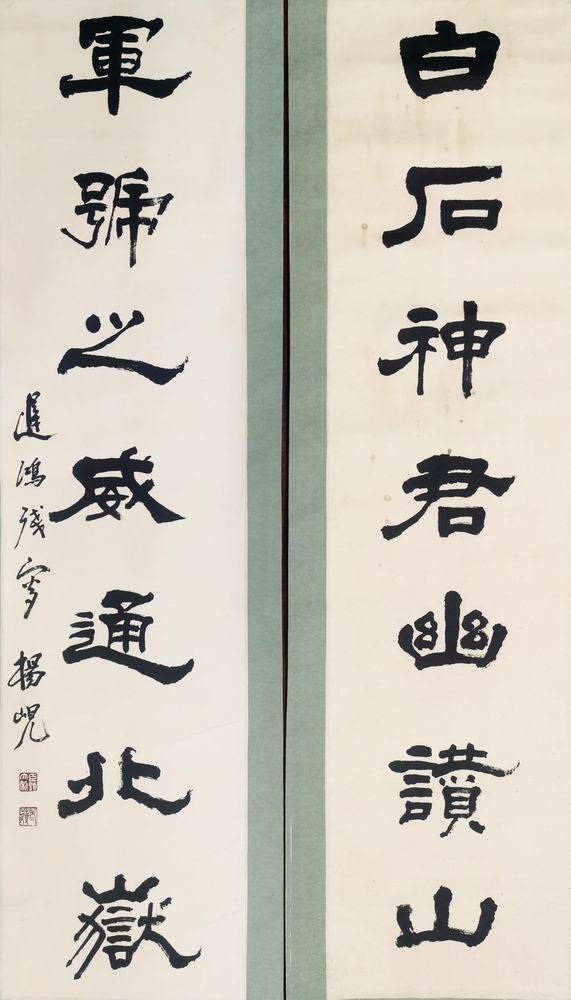 白石神君幽讚山
軍號之威通北嶽
遲鴻殘叜 楊峴